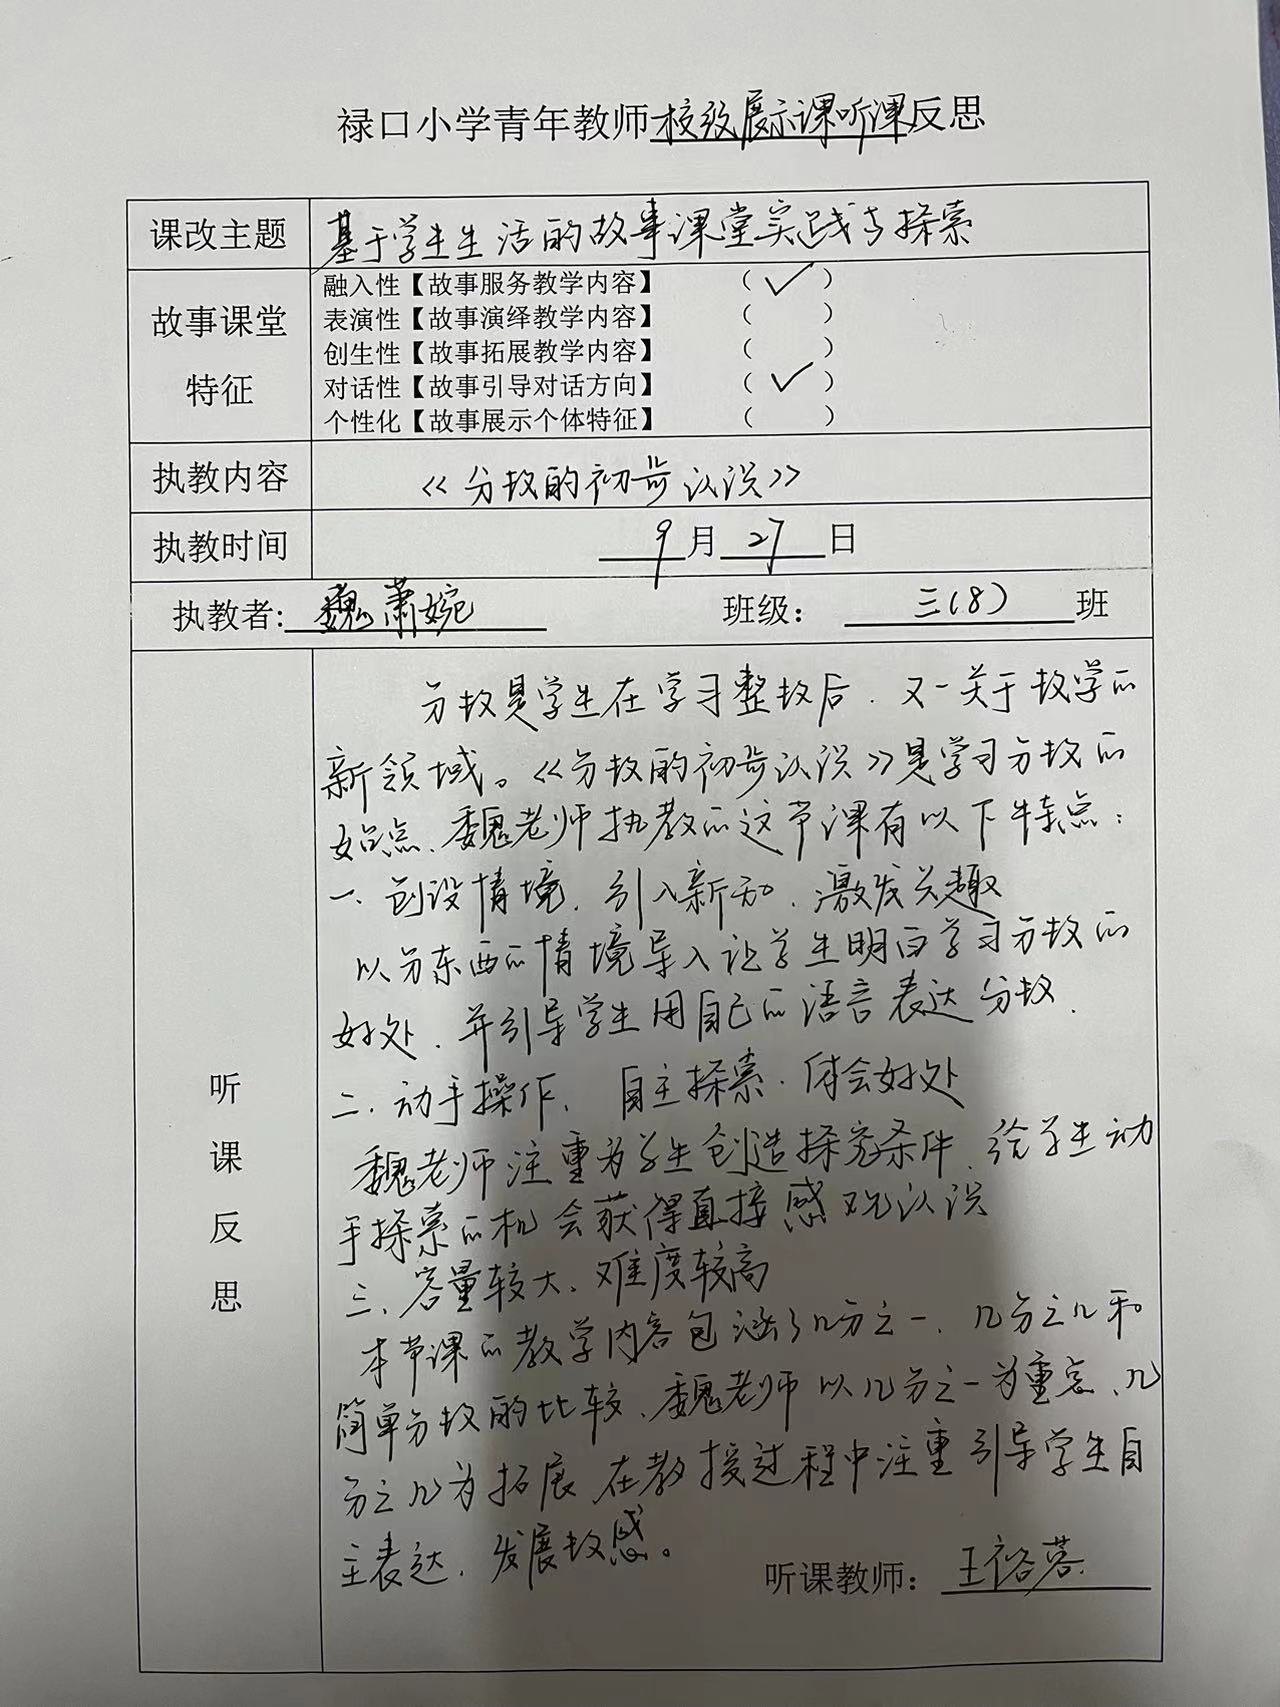 禄口小学青年教师校级展示课听课反思
课改主题 基于学生生活的故事课堂实践与探索
故事课堂特征
融入性【故事服务教学内容】 (✓)
表演性【故事演绎教学内容】 ( )
创生性【故事拓展教学内容】 ( )
对话性【故事引导对话方向】 (✓)
个性化【故事展示个体特征】 ( )
执教内容 《分数的初步认识》
执教时间 9月27日
执教者:魏萧婉 班级:三(8)班
听课反思
分数是学生在学习整数后,又一关于数学的
新领域。《分数的初步认识》是学习分数的
始点、魏老师执教的这节课有以下特点:
一、创设情境,引入新知,激发兴趣
以分东西的情境导入让学生明白学习分数的
好处,并引导学生用自己的语言表达分数.
二、动手操作、自主探索.体会好处
魏老师注重为学生创造探究条件,给学生动
手探索的机会获得直接感观认识
三、容量较大、难度较高
本节课的教学内容包涵了几分之一、几分之几和
简单分数的比较、魏老师以几分之一为重点、几
分之几为拓展,在教授过程中注重引导学生自
主表达,发展数感。
听课教师:王裕蓉